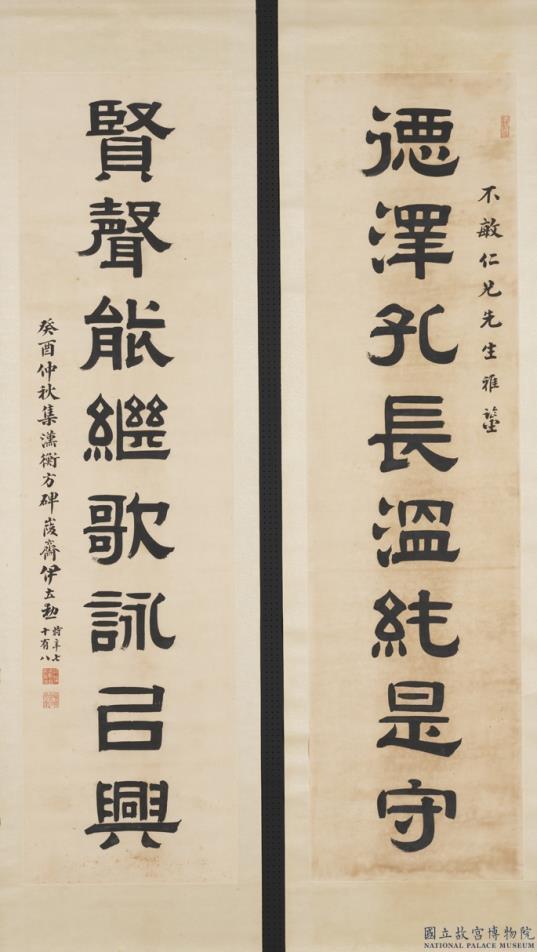 德澤孔長溫純是守
不敏仁兄先生雅鑒
賢聲能繼歌詠㠯興
癸酉仲秋集漢衡方碑峻齋伊立勳
時年七
十有八
國立故宮博物院
NATIONAL PALACE MUSEUM